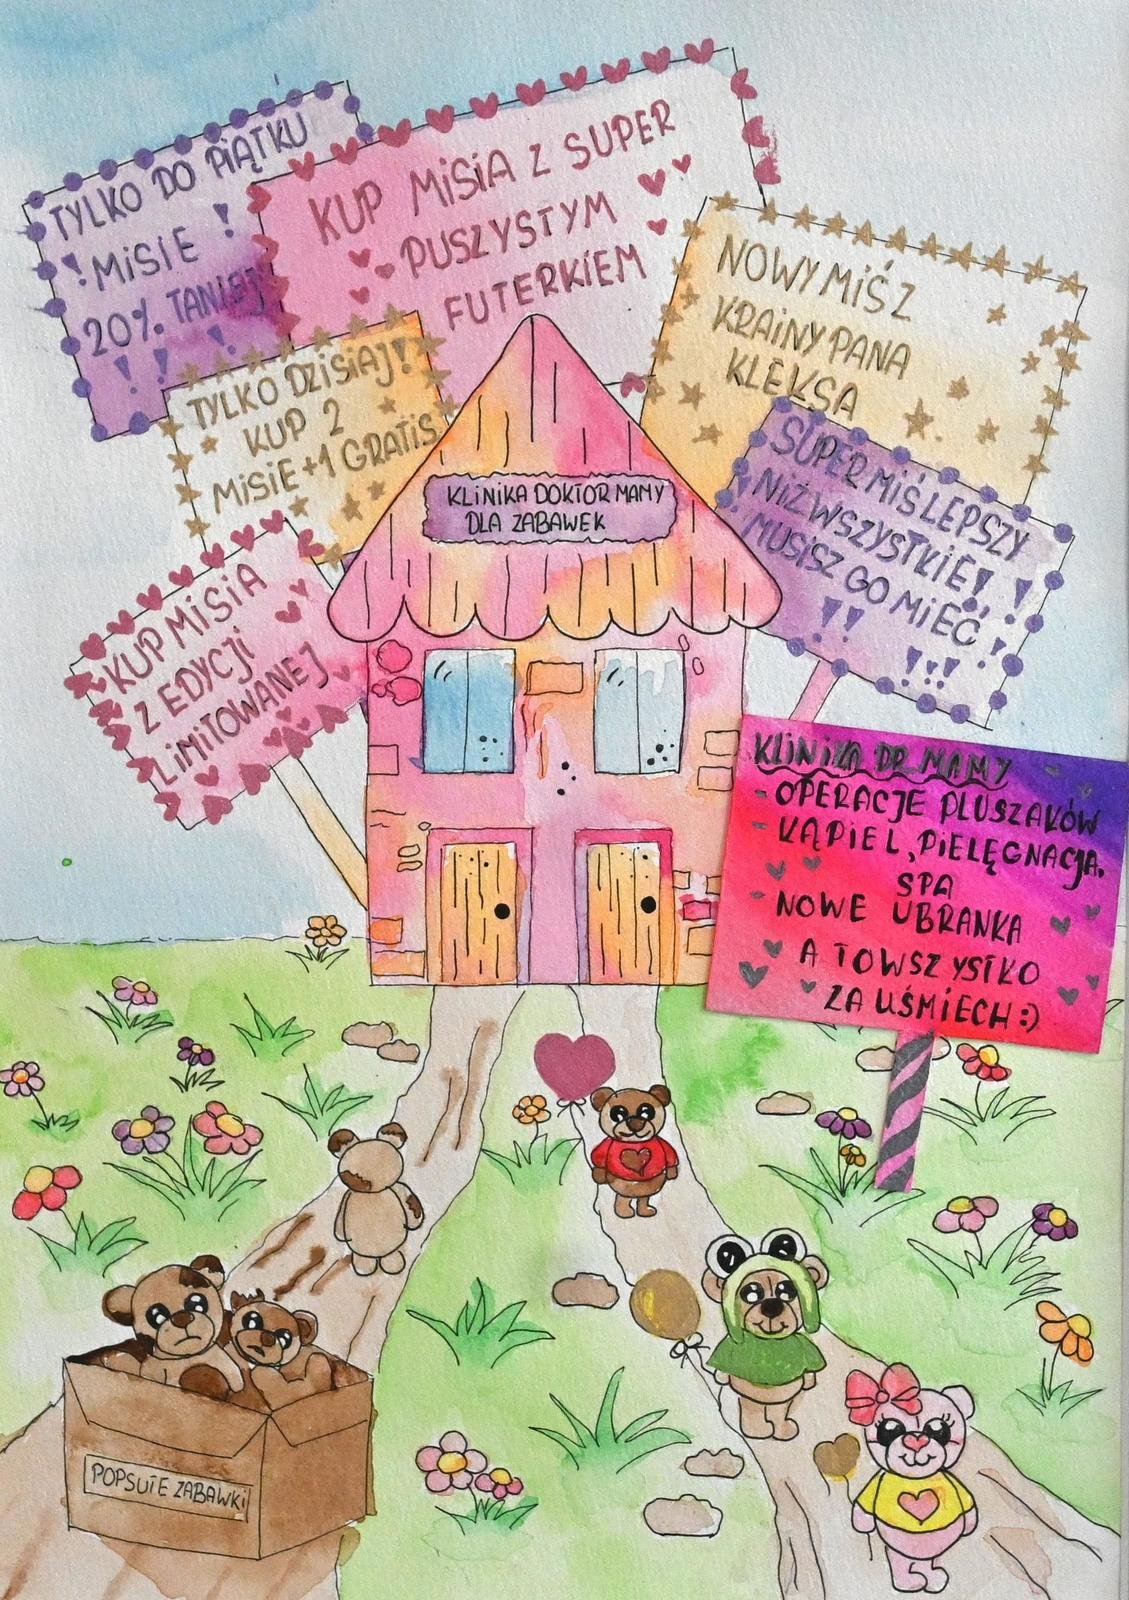 TYLKO DO PIĄTKU
! MISIE !
20% TANIEJ
! ! !
KUP MISIA Z SUPER
PUSZYSTYM
FUTERKIEM
NOWY MIŚ Z
KRAINY PANA
KLEKSA
TYLKO DZISIAJ!
KUP 2
MISIE +1 GRATIS
SUPER MIŚ LEPSZY
NIŻ WSZYSTKIE! !
MUSISZ GO MIEĆ !
!! !!!
KUP MISIA
Z EDYCJI
LIMITOWANEJ
KLINIKA DOKTOR MAMY
DLA ZABAWEK
KLINIKA DR MAMY
- OPERACJE PLUSZAKÓW
- KĄPIEL, PIELĘGNACJA,
SPA
- NOWE UBRANKA
A TO WSZYSTKO
ZA UŚMIECH :)
POPSUTE ZABAWKI